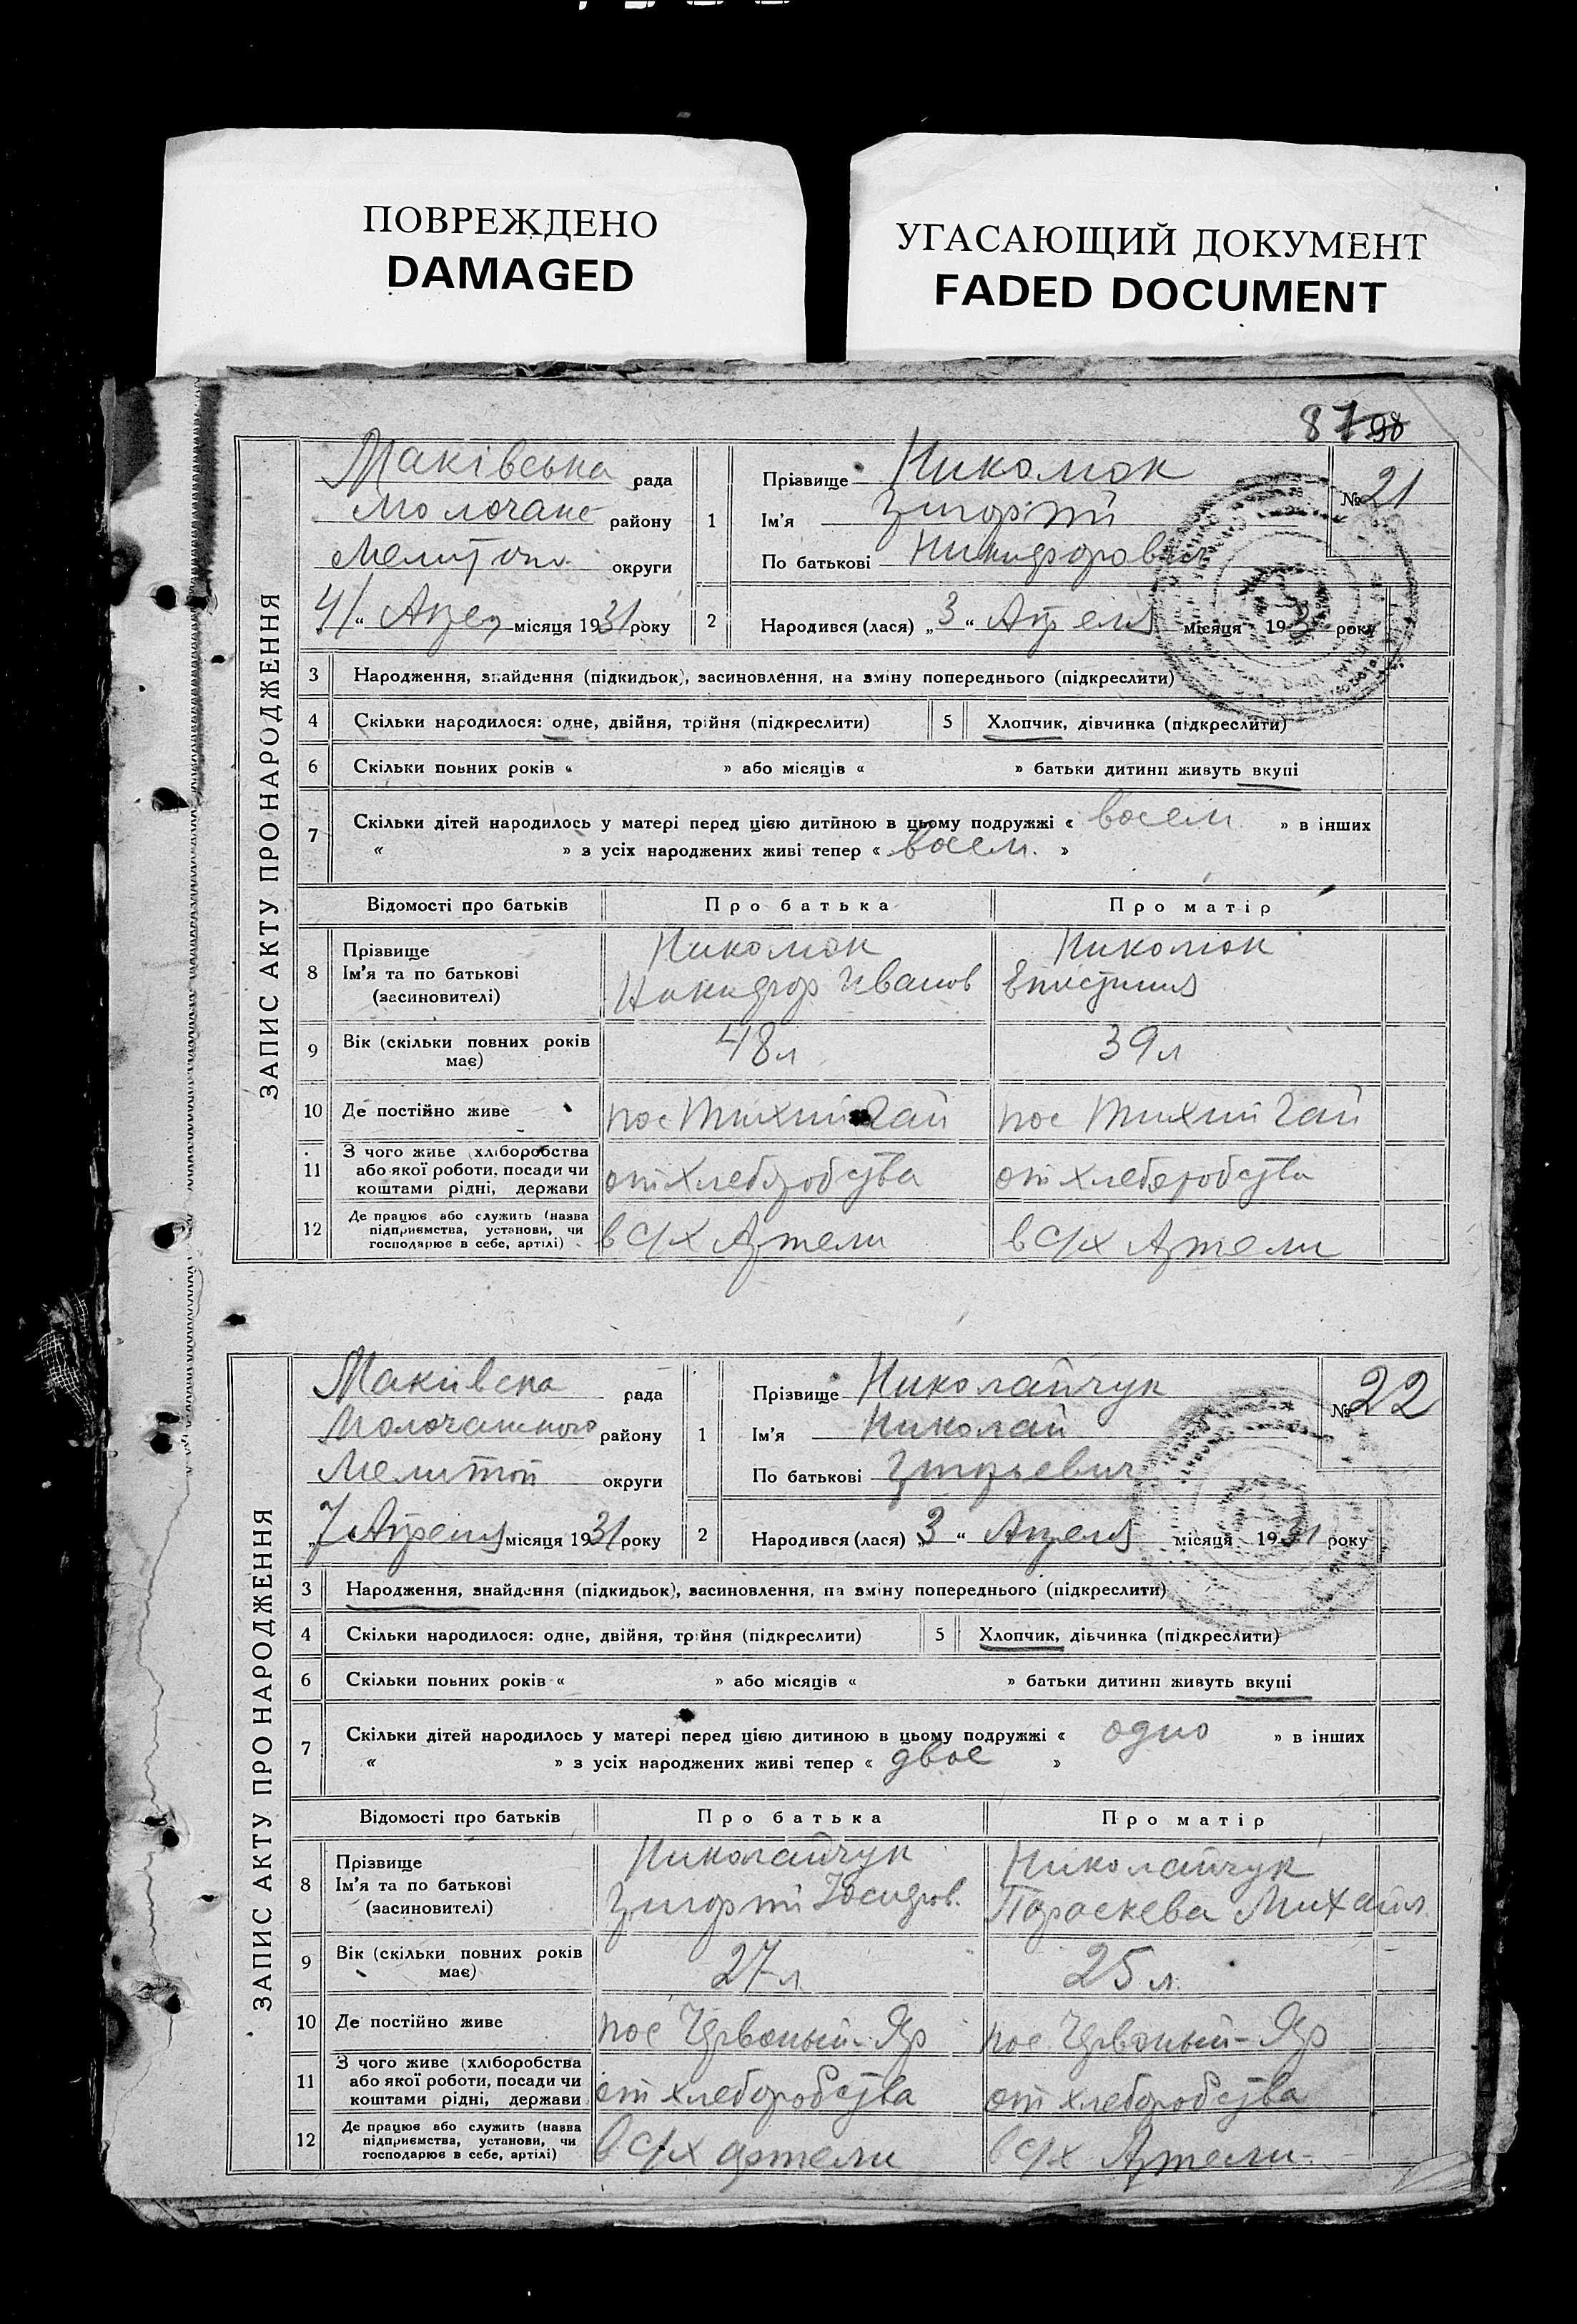 ПОВРЕЖДЕНО
DAMAGED
УГАСАЮЩИЙ ДОКУМЕНТ
FADED DOCUMENT
87 98
ЗАПИС АКТУ ПРО НАРОДЖЕННЯ
Маківська рада
Молочанс району
Мелитоп. округи
4/ “ Апрел місяця 1931 року
1 Прізвище Николюк
Ім’я Григорий
По батькові Никифорович
№ 21
2 Народився (лася) „3 “ Апреля місяця 193 року
3 Народження, знайдення (підкидьок), засиновлення, на зміну попереднього (підкреслити)
4 Скільки народилося: одне, двійня, трійня (підкреслити) 5 Хлопчик, дівчинка (підкреслити)
6 Скільки повних років « » або місяців « » батьки дитини живуть вкупі
7 Скільки дітей народилось у матері перед цією дитиною в цьому подружжі « восем » в інших
« » з усіх народжених живі тепер « восем. »
Відомості про батьків Про батька Про матір
8 Прізвище Николюк Николюк
Ім’я та по батькові Никифор Иванов
(засиновителі)
9 Вік (скільки повних років має) 48 л 39 л
10 Де постійно живе пос Тихий Гай пос Тихий Гай
11 З чого живе (хліборобства
або якої роботи, посади чи от хлеборобства от хлеборобства
коштами рідні, держави
12 Де працює або служить (назва
підприємства, установи, чи в с/х Артели в с/х Артели
господарює в себе, артілі)
ЗАПИС АКТУ ПРО НАРОДЖЕННЯ
Макивска рада
Молочанского району
Мелитоп округи
„7 Апреля місяця 1931 року
1 Прізвище Николайчук
Ім’я Николай
По батькові Григорьевич
№ 22
2 Народився (лася) 3 “ Апреля місяця 1931 року
3 Народження, знайдення (підкидьок), засиновлення, на зміну попереднього (підкреслити)
4 Скільки народилося: одне, двійня, трійня (підкреслити) 5 Хлопчик, дівчинка (підкреслити)
6 Скільки повних років « » або місяців « » батьки дитини живуть вкупі
7 Скільки дітей народилось у матері перед цією дитиною в цьому подружжі « одно » в інших
« » з усіх народжених живі тепер « двое »
Відомості про батьків Про батька Про матір
8 Прізвище Николайчук Николайчук
Ім’я та по батькові Григорий Параскева Михайл.
(засиновителі)
9 Вік (скільки повних років має) 27 л. 25 л.
10 Де постійно живе пос Червоный-Яр пос Червоный-Яр
11 З чого живе (хліборобства
або якої роботи, посади чи
коштами рідні, держави от хлеборобства от хлеборобства
12 Де працює або служить (назва
підприємства, установи, чи в с/х артели в с/х Артели
господарює в себе, артілі)